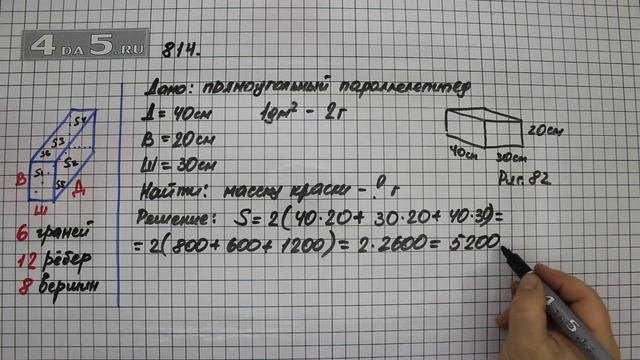 4 DA 5.RU
814.
Дано: прямоугольный параллелепипед
Д = 40см 1дм² - 2г
В = 20см
Ш = 30см
Найти: массу краски - ? г
Решение: S = 2(40·20 + 30·20 + 40·30) =
= 2(800 + 600 + 1200) = 2·2600 = 5200
S4
S3
S6
S2
S1
S5
В
Д
Ш
6 граней
12 рёбер
8 вершин
20см
40см
30см
Рис. 82